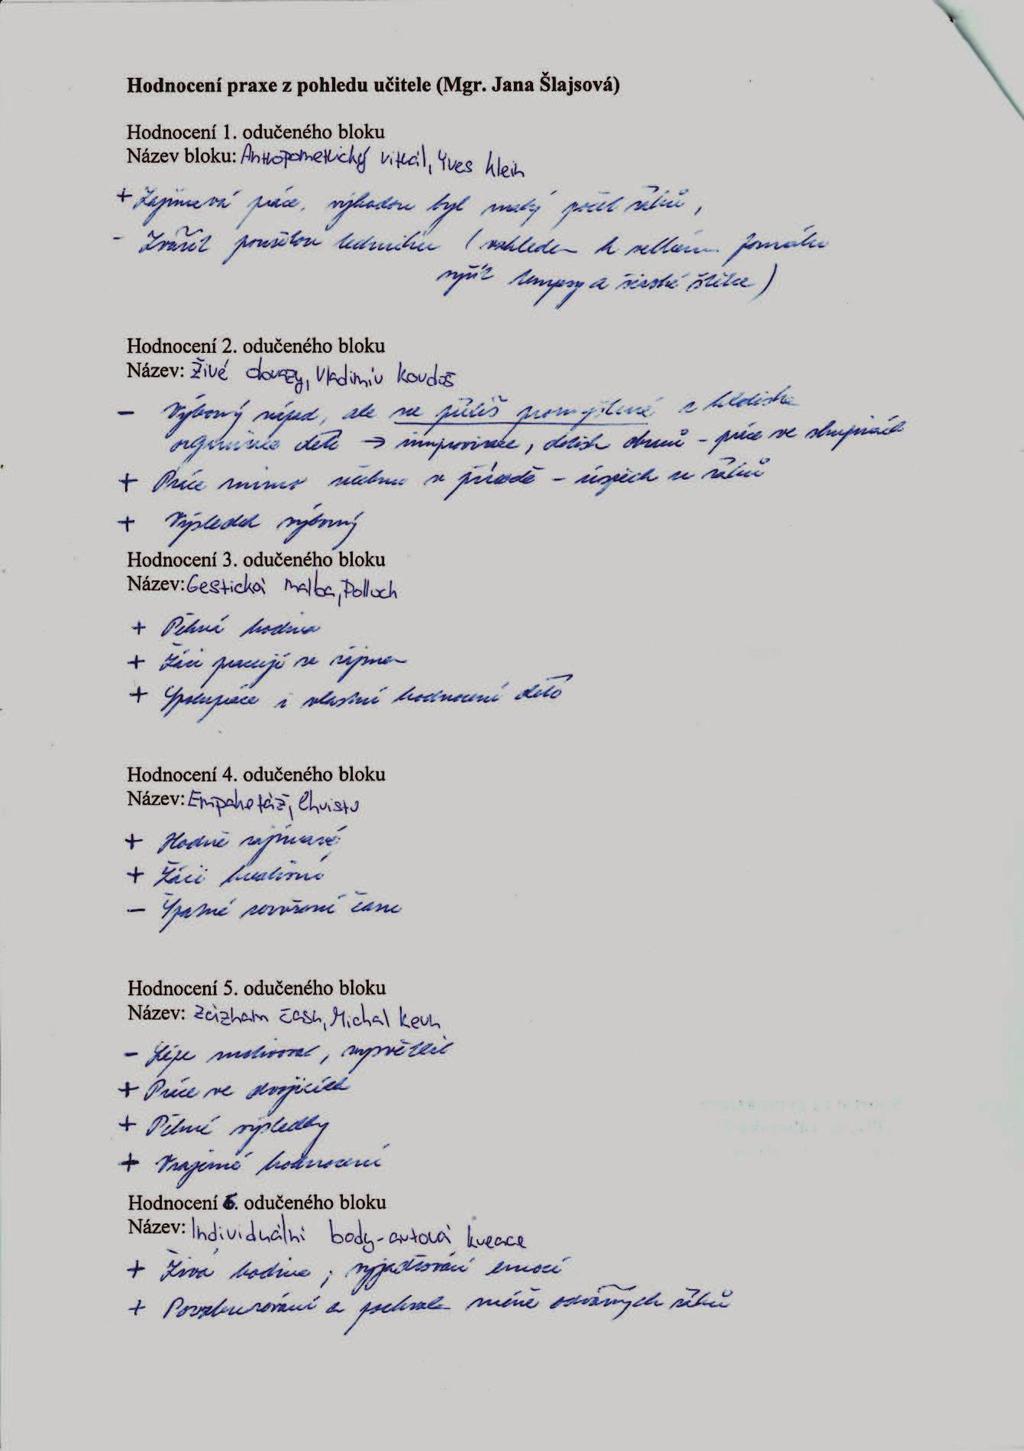 Hodnocení praxe z pohledu učitele (Mgr. Jana Šlajsová)
Hodnocení 1. odučeného bloku
Název bloku: Antropometrický rituál, Yves Klein
+ Zajímavá práce, výhodou byl malý počet žáků,
- Zvážit použitou techniku (vzhledem k velkému formátu
využít tempery a široké štětce)
Hodnocení 2. odučeného bloku
Název: Živé obrazy, Vladimír Kovdoš
- Výborný nápad, ale ne příliš promyšlené z hlediska
organizace dětí → improvizace, dětish obrazů - práce ve skupinách
+ Práce mimo učebnu v přírodě - úspěch u žáků
+ Výsledek výborný
Hodnocení 3. odučeného bloku
Název: Gestická malba, Pollock
+ Pěkná hodina
+ Žáci pracují se zájmem
+ Spolupráce i vlastní hodnocení dětí
Hodnocení 4. odučeného bloku
Název: Empaketáž, Christo
+ Hodně zajímavé
+ Žáci kreativní
- Špatné rozvržení času
Hodnocení 5. odučeného bloku
Název: Záznam času, Michal Kern
- Lépe motivovat, vysvětlit
+ Práce ve dvojicích
+ Pěkné výsledky
+ Vzájemné hodnocení
Hodnocení 6. odučeného bloku
Název: Individuální body-artová kreace
+ Živá hodina, vyjadřování emocí
+ Povzbuzování a pochvala méně odvážných žáků